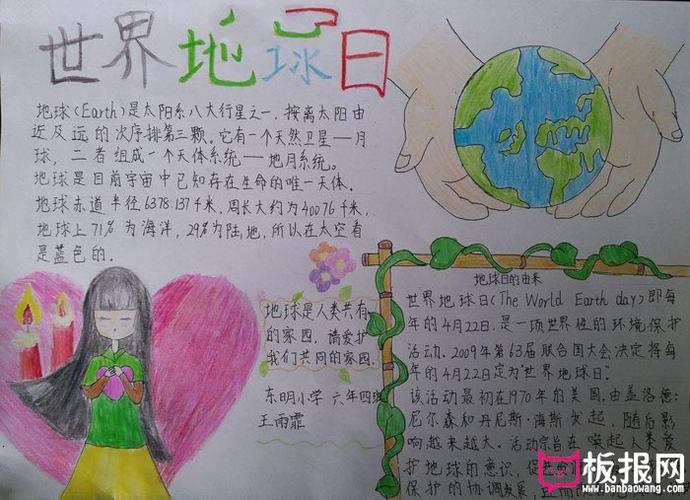 世界地球日
地球(Earth)是太阳系八大行星之一，按离太阳由
近及远的次序排第三颗。它有一个天然卫星——月
球，二者组成一个天体系统——地月系统。
地球是目前宇宙中已知存在生命的唯一天体。
地球赤道半径6378.137千米，周长大约为40076千米，
地球上71%为海洋，29%为陆地，所以在太空看
是蓝色的。
地球是人类共有
的家园，请爱护
我们共同的家园。
东明小学 六年四班
王雨霏
地球日的由来
世界地球日(The World Earth day)即每
年的4月22日，是一项世界性的环境保护
活动。2009年第63届联合国大会决定将每
年的4月22日定为"世界地球日"。
该活动最初在1970年的美国由盖洛德·
尼尔森和丹尼斯·海斯发起，随后影
响越来越大。活动宗旨在唤起人类爱
护地球的意识，促进
保护的协调发展，进而
板报网
www.banbaowang.com